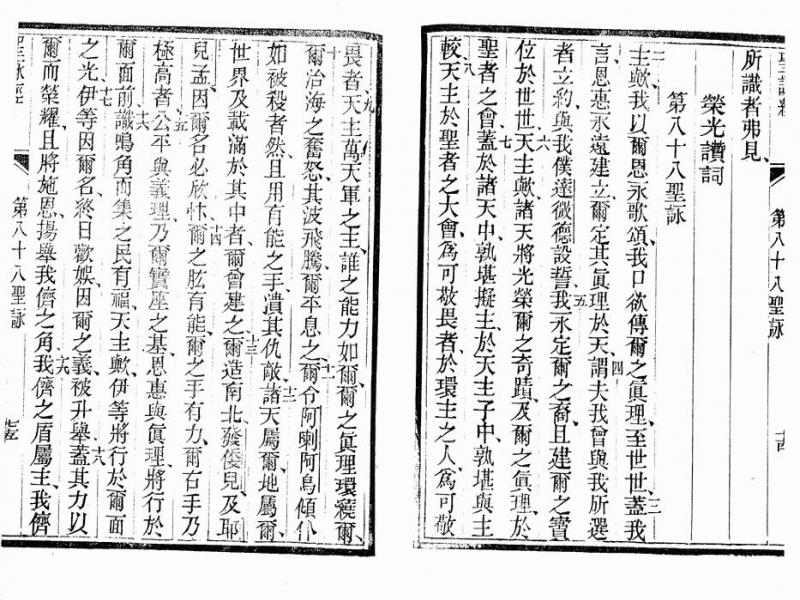 聖詠經 第八十八聖詠 十四
所識者弗見、
榮光讚詞
第八十八聖詠
二主歟、我以爾恩永歌頌、我口欲傳爾之眞理、至世世、三蓋我
言、恩惠永遠建立、爾定其眞理於天、四謂夫我曾與我所選
者立約、與我僕達微德設誓、五我永定爾之裔、且建爾之寶
位於世世、六天主歟、諸天將光榮爾之奇蹟、及爾之眞理、於
聖者之會、七蓋於諸天中、孰堪擬主、於天主子中、孰堪與主
較、八天主於聖者之大會、爲可敬畏者、於環主之人、爲可敬
畏者、九天主萬天軍之王、誰之能力如爾、爾之眞理環繞爾、
爾治海之奮怒、其波飛騰、爾平息之、十一爾令阿喇阿烏傾仆
如被殺者然、且用有能之手、潰其仇敵、十二諸天屬爾、地屬爾、
世界及載滿於其中者、爾曾建之、十三爾造南北、發倭兒、及耶
兒孟、因爾名必欣怵、十四爾之肱有能、爾之手有力、爾右手乃
極高者、十五公平與義理、乃爾寶座之基、恩惠與眞理、將行於
爾面前、十六識鳴角而集之民有福、天主歟、伊等將行於爾面
之光、十七伊等因爾名、終日歡娛、因爾之義、被升舉、十八蓋其力以
爾而榮耀、且將施恩、揚舉我儕之角、十九我儕之盾屬主、我儕
聖詠經 第八十八聖詠